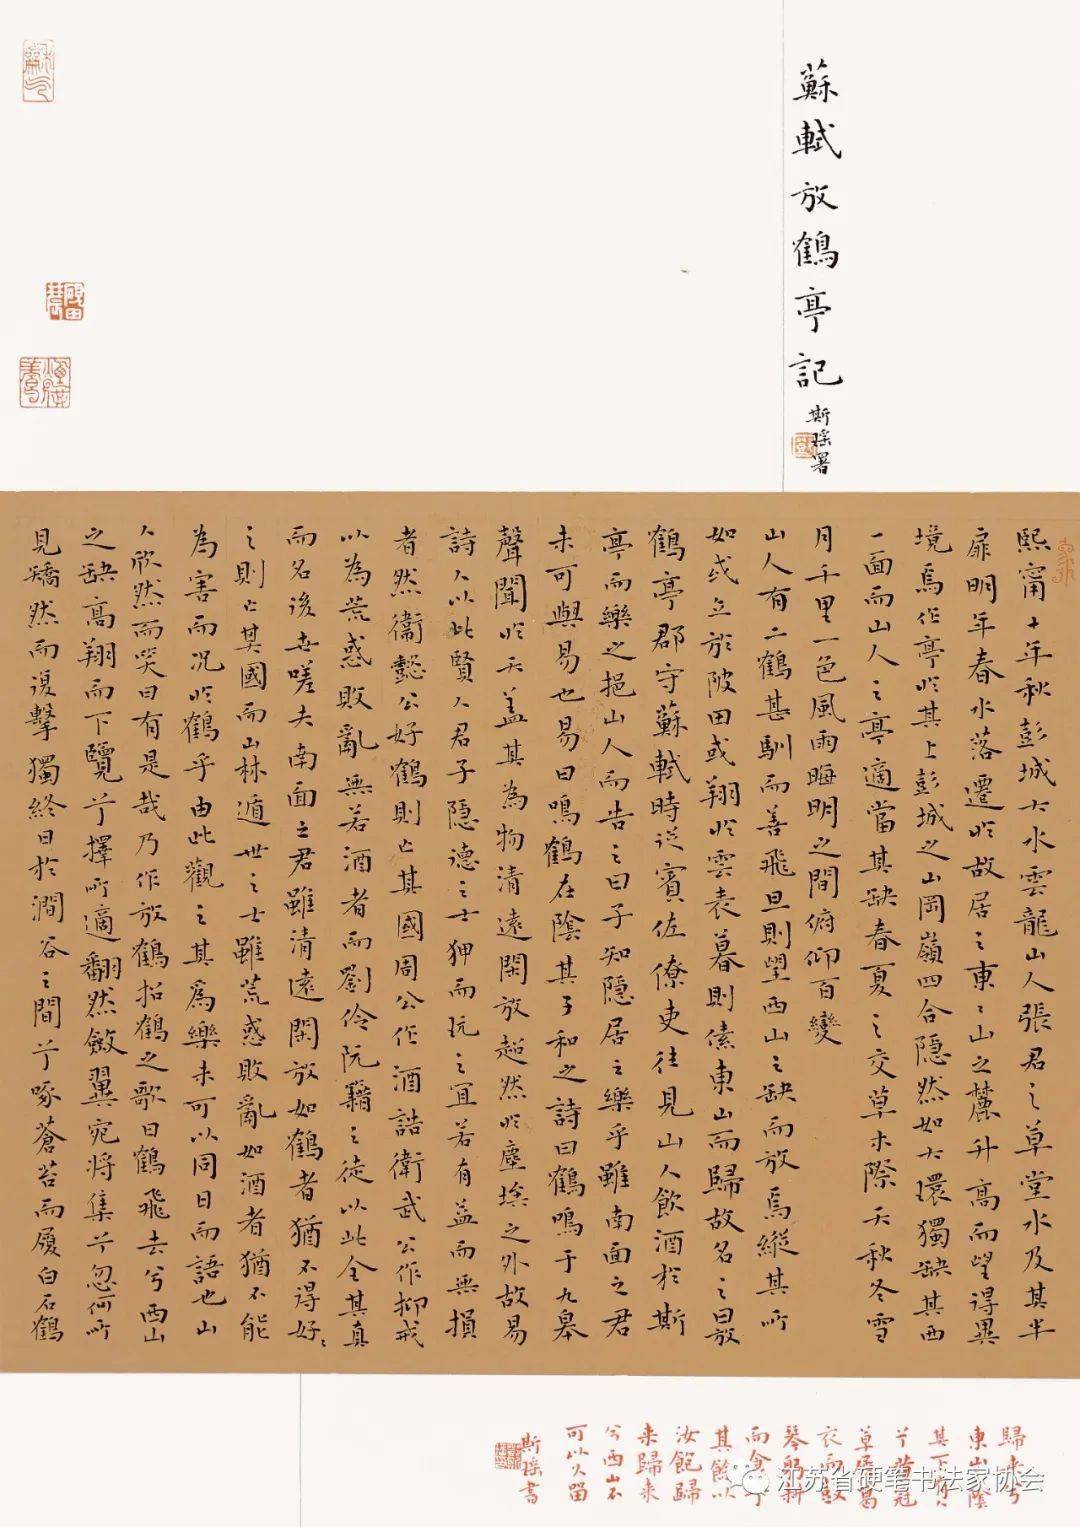 蘇軾放鶴亭記
斯瑤署
熙甯十年秋彭城大水雲龍山人張君之草堂水及其半
扉明年春水落遷於故居之東東山之麓升高而望得異
境焉作亭於其上彭城之山岡嶺四合隱然如大環獨缺其西
一面而山人之亭適當其缺春夏之交草木際天秋冬雪
月千里一色風雨晦明之間俯仰百變
山人有二鶴甚馴而善飛旦則望西山之缺而放焉縱其所
如或立於陂田或翔於雲表暮則傃東山而歸故名之曰放
鶴亭郡守蘇軾時從賓佐僚吏往見山人飲酒於斯
亭而樂之挹山人而告之曰子知隱居之樂乎雖南面之君
未可與易也易曰鳴鶴在陰其子和之詩曰鶴鳴于九皋
聲聞於天蓋其為物清遠閑放超然於塵埃之外故易
詩人以此賢人君子隱德之士狎而玩之宜若有益而無損
者然衞懿公好鶴則亡其國周公作酒誥衛武公作抑戒
以為荒惑敗亂無若酒者而劉伶阮籍之徒以此全其真
而名後世嗟夫南面之君雖清遠閑放如鶴者猶不得好好
之則亡其國而山林遁世之士雖荒惑敗亂如酒者猶不能
為害而况於鶴乎由此觀之其為樂未可以同日而語也山
人欣然而笑曰有是哉乃作放鶴招鶴之歌曰鶴飛去兮西山
之缺高翔而下覽兮擇所適翻然斂翼宛將集兮忽何所
見矯然而復擊獨終日於澗谷之間兮啄蒼苔而履白石鶴
歸來兮
東山之陰
其下有人
兮黃冠
草屨葛
衣而鼓
琴躬耕
而食兮
其餘以
汝飽歸
來歸來
兮西山不
可以久留
斯瑤書
江苏省硬笔书法家协会